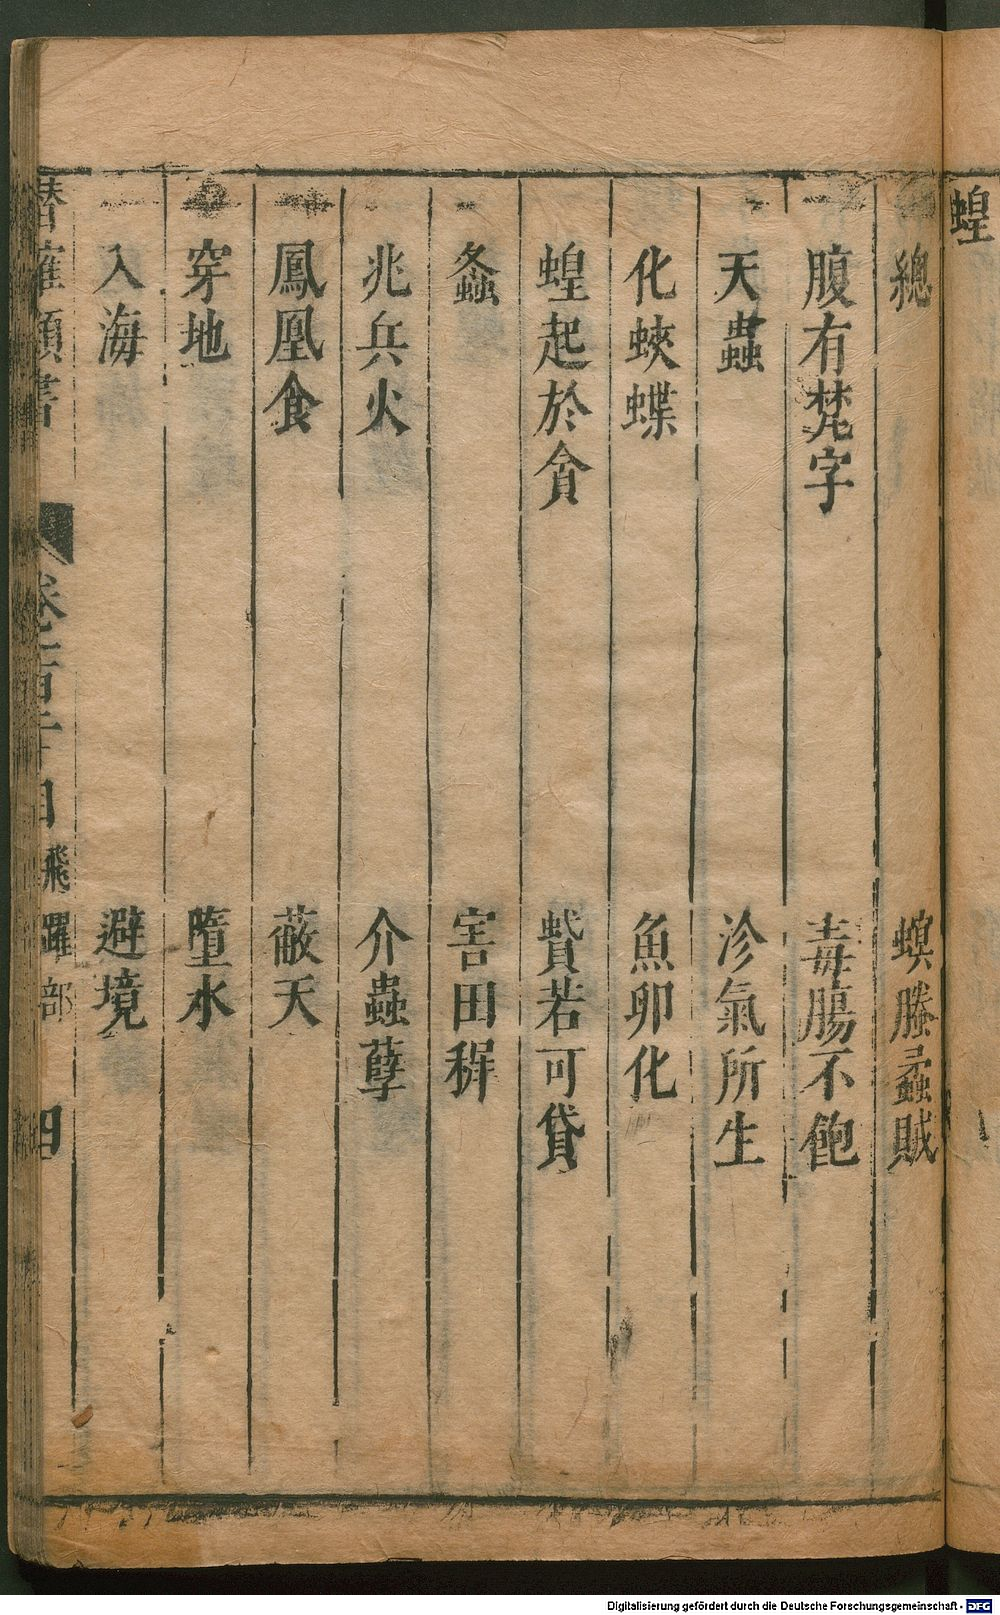 蝗
總
螟螣蟊賊
腹有梵字
毒腸不飽
天蟲
沴氣所生
化蛺蝶
魚卵化
蝗起於貪
蟘若可貸
螽
害田穉
兆兵火
介蟲孽
鳳凰食
蔽天
穿地
墮水
入海
避境
潛確類書
卷一百十目
飛躍部
四
Digitalisierung gefördert durch die Deutsche Forschungsgemeinschaft - DFG